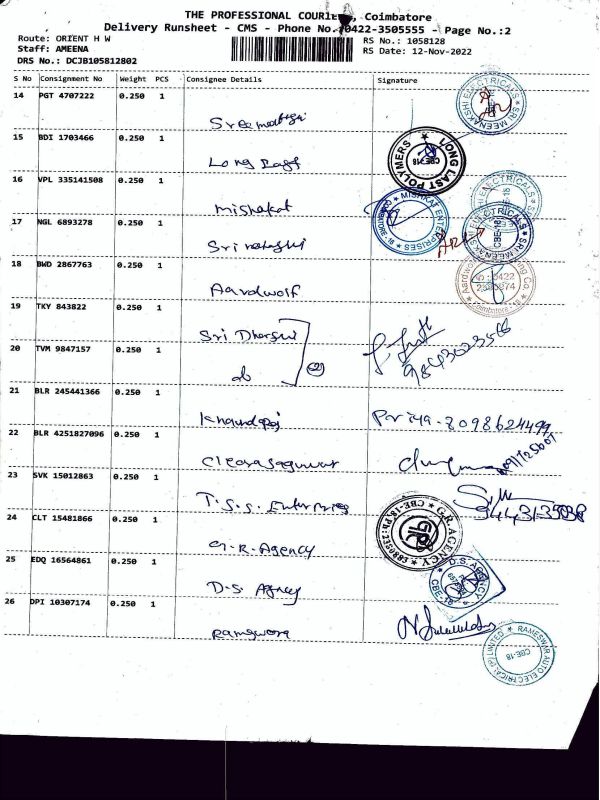 THE PROFESSIONAL COURIER, Coimbatore
Delivery Runsheet - CMS - Phone No.:0422-3505555 - Page No.:2
Route: ORIENT H W
RS No.: 1058128
Staff: AMEENA
RS Date: 12-Nov-2022
DRS No.: DCJB105812802
S No Consignment No Weight PCS Consignee Details Signature
14 PGT 4707222 0.250 1
SRI MEENAKSHI ELECTRICALS
15 BDI 1703466 0.250 1
Long Last
LONG LAST POLYMERS CBE-18
16 VPL 335141508 0.250 1
Mishakat
MISHKAT ENTERPRISES
17 NGL 6893278 0.250 1
Sri
CBE-18
18 BWD 2867763 0.250 1
Aardwolf
Coimbatore
19 TKY 843822 0.250 1
Sri Dharshi
20 TVM 9847157 0.250 1
do
2
21 BLR 245441366 0.250 1
Priya-8098624499
22 BLR 4251827096 0.250 1
23 SVK 15012863 0.250 1
T.S.S. Enterprises
24 CLT 15481866 0.250 1
G.R. Agency
G.R. AGENCY
25 EDQ 16564861 0.250 1
D.S. Agency
D.S. AGENCY CBE-18
26 DPI 10307174 0.250 1
RAMESWAR AUTO ELECTRICAL (P) LIMITED CBE-18